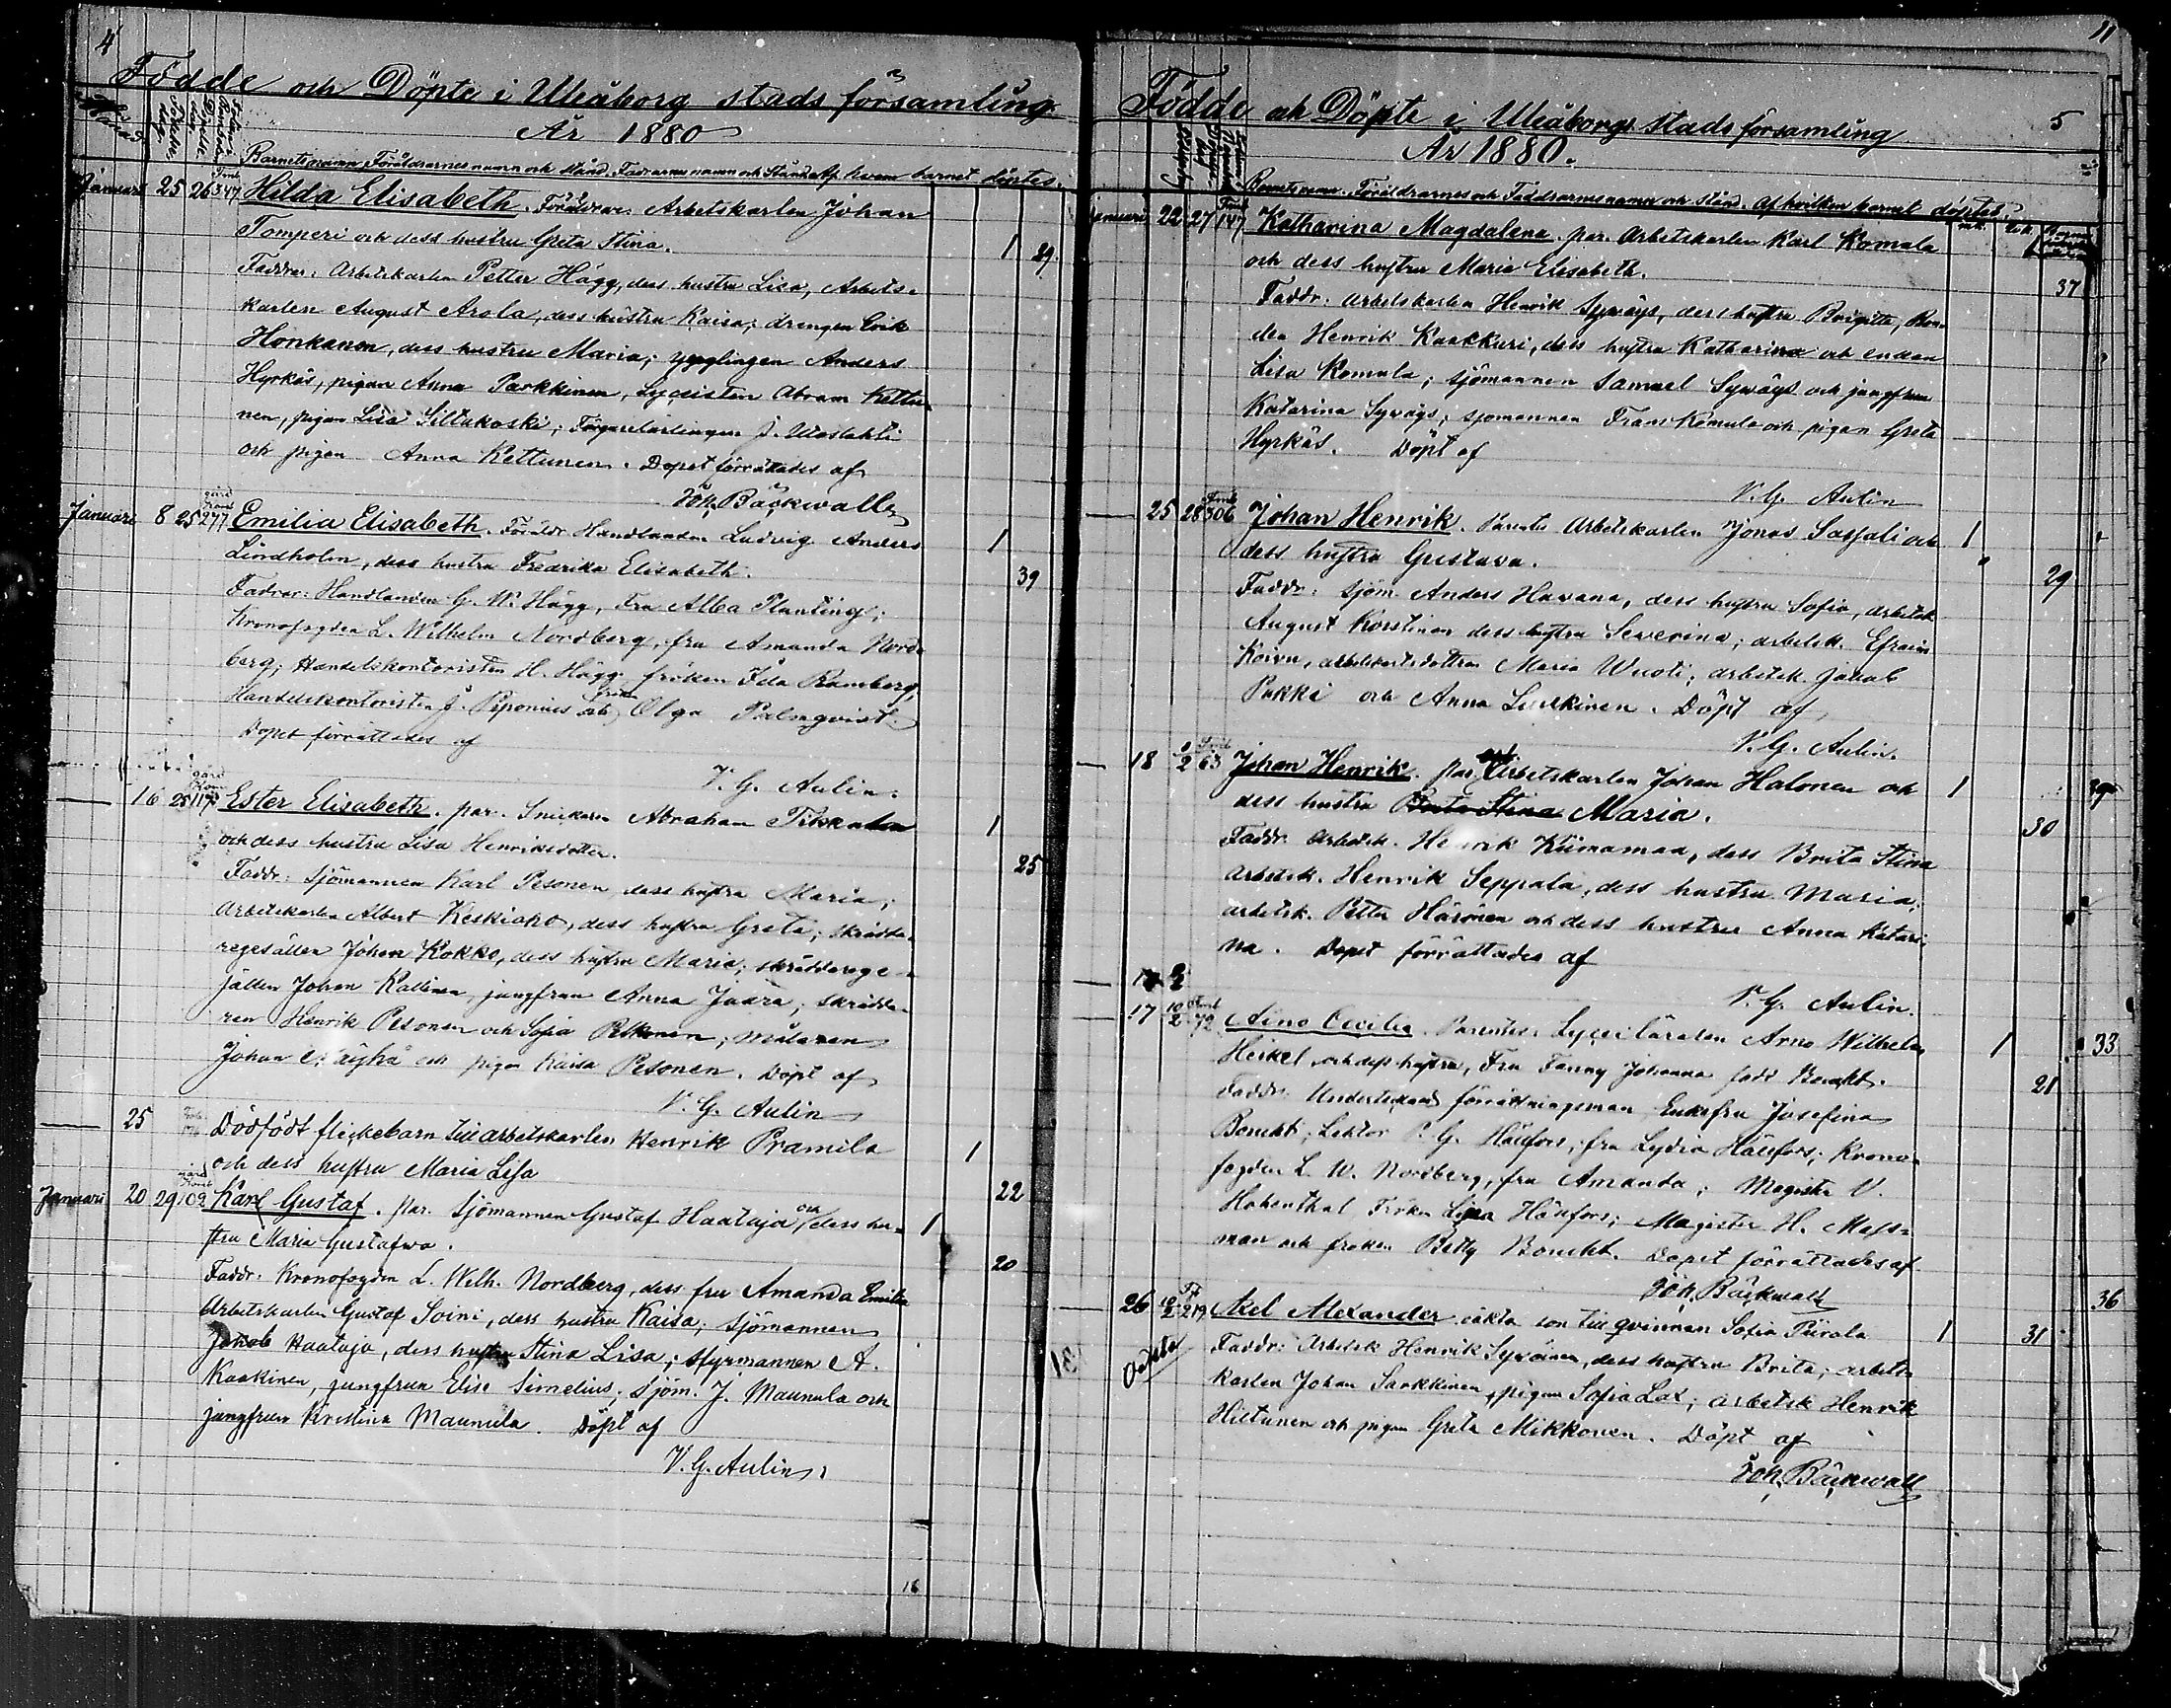 4
Födde och Döpte i Uleåborg stads församling
År 1880
Månad
Barnets namn, Föräldrarnes namn och stånd, Faddrarnes namn och Stånd. Af hvem barnet döptes.
Januari 25 26 347 Hilda Elisabeth. Föräldrar: Arbetskarlen Johan
Tomperi och dess hustru Greta Stina. 1 29.
Faddrar: Arbetskarlen Petter Hägg, dess hustru Lisa, Arbets-
karlen August Arola, dess hustru Kaisa; drengen Erik
Honkanen, dess hustru Maria; ynglingen Anders
Hyrkäs, pigan Anna Parkkinen, Lyceisten Abram Kettu-
nen, pigan Lisa Siltakoski; J.
och pigan Anna Kettunen. Dopet förrättades af
Joh. Bäckwall
Januari 8 25 277 Emilia Elisabeth. Föräldr. Handlanden Ludvig Anders 1
Lindholm, dess hustru Fredrika Elisabeth. 39
Fadrar: Handlanden G. W. Hägg, Fru Alba Planting;
Kronofogden L. Wilhelm Nordberg, fru Amanda Nord-
berg; Handelskontoristen H. Hägg fröken Ida Ramberg,
Handelskontoristen J. och fröken Olga Palmqvist.
Dopet förrättades af
V. G. Aulin.
16 25 117 Ester Elisabeth. par. Snickaren Abraham Tikkanen 1
och dess hustru Lisa Henriksdotter. 25
Faddr: Sjömannen Karl Pesonen, dess hustru Maria;
Arbetskarlen Albert Keskiaho, dess hustru Greta; skrädda-
regesällen Johan Kokko, dess hustru Maria; skräddarege-
sällen Johan Kallinen, jungfrun Anna Jaara; skrädda-
ren Henrik Pesonen och Sofia Pelkonen; målaren
Johan och pigan Kaisa Pesonen. Döpt af
V. G. Aulin
25 Dödfödt flickebarn till arbetskarlen Henrik Pramila 1
och dess hustru Maria Lisa 22
Januari 20 29 102 Karl Gustaf. par. Sjömannen Gustaf Haataja och dess hu- 1
stru Maria Gustafva. 20
Faddr. Kronofogden L. Wilh. Nordberg, dess fru Amanda Emilia
Arbetskarlen Gustaf Soini, dess hustru Kaisa; Sjömannen
Jakob Haataja, dess hustru Stina Lisa; styrmannen A.
Kaakinen, jungfrun Elise Simelius; sjöm. J. Maunula och
jungfrun Kristina Maunula. Döpt af
V. G. Aulin.
16
Födde och Döpte i Uleåborgs stads församling 5
År 1880.
Barnets namn. Föräldrarnes och Faddrarnes namn och stånd. Af hvilken barnet döptes.
Januari 22 27 147 Katharina Magdalena. par. Arbetskarlen Karl Komula
och dess hustru Maria Elisabeth. 37
Faddr. arbetskarlen Henrik Syväys, dess hustru Brigitta, Bon-
den Henrik Kaakkuri, dess hustru Katharina och enkan
Lisa Komula; sjömannen Samuel Syväys och jungfrun
Katarina Syväys; sjömannen Frans Komula och pigan Greta
Hyrkäs. Döpt af
V. G. Aulin
25 28 306 Johan Henrik. Parentes Arbetskarlen Jonas Sassali och 1
dess hustru Gustava. 29
Faddr: sjöm. Anders Havana, dess hustru Sofia, arbetsk.
August Korstinen dess hustru Severina; arbetsk. Efraim
Koivu, arbetskarlsdottren Maria Wuoti; arbetsk. Jakob
Pukki och Anna Leskinen. Döpt af
V. G. Aulin.
18 2 63 Johan Henrik. par. Arbetskarlen Johan Halonen och 1
dess hustru Maria. 30
Faddr. arbetsk. Henrik Kiimamaa, dess Brita Stina
arbetsk. Henrik Seppala, dess hustru Maria;
arbetsk. Petter Härönen och dess hustru Anna Katari-
na. Dopet förrättades af
V. G. Aulin.
17 10/2 72 Aino Cecilia. Parentes: Lyceiläraren Arno Wilhelm 1 33
Heikel och dess hustru, Fru Fanny Johanna född Bonsdt. 21
Faddr. Undertecknad förrättningsman Enkefru Josefina
Lektor P. G. Hällfors, fru Lydia Hällfors; Krono-
fogden L. W. Nordberg, fru Amanda; Magister V.
Hohenthal Fröken Lina Hällfors; Magister H. Mass-
man och fröken Betty Dopet förrättades af
Joh. Bäckwall
26 10/2 219 Axel Alexander oäkta son till qvinnan Sofia Piirala 1 31 36
Oäkta Faddr: Arbetsk Henrik Syvänen, dess hustru Brita; arbets-
karlen Johan Sarkkinen, pigan Sofia Lax; arbetsk Henrik
Hiltunen och pigan Greta Mikkonen. Döpt af
Joh. Bäckwall